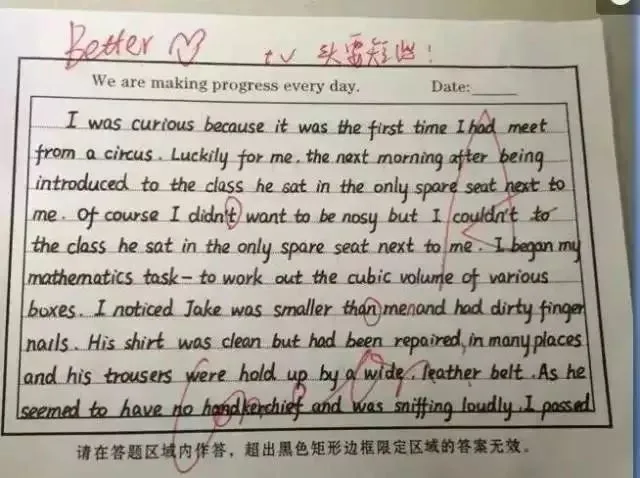 Better
tv 头要短些!
We are making progress every day. Date:
I was curious because it was the first time I had meet
from a circus. Luckily for me, the next morning after being
introduced to the class he sat in the only spare seat next to
me. Of course I didn't want to be nosy but I couldn't to
the class he sat in the only spare seat next to me. I began my
mathematics task - to work out the cubic volume of various
boxes. I noticed Jake was smaller than menand had dirty finger
nails. His shirt was clean but had been repaired, in many places
and his trousers were hold up by a wide, leather belt. As he
seemed to have no handkerchief and was sniffing loudly. I passed
请在答题区域内作答，超出黑色矩形边框限定区域的答案无效。